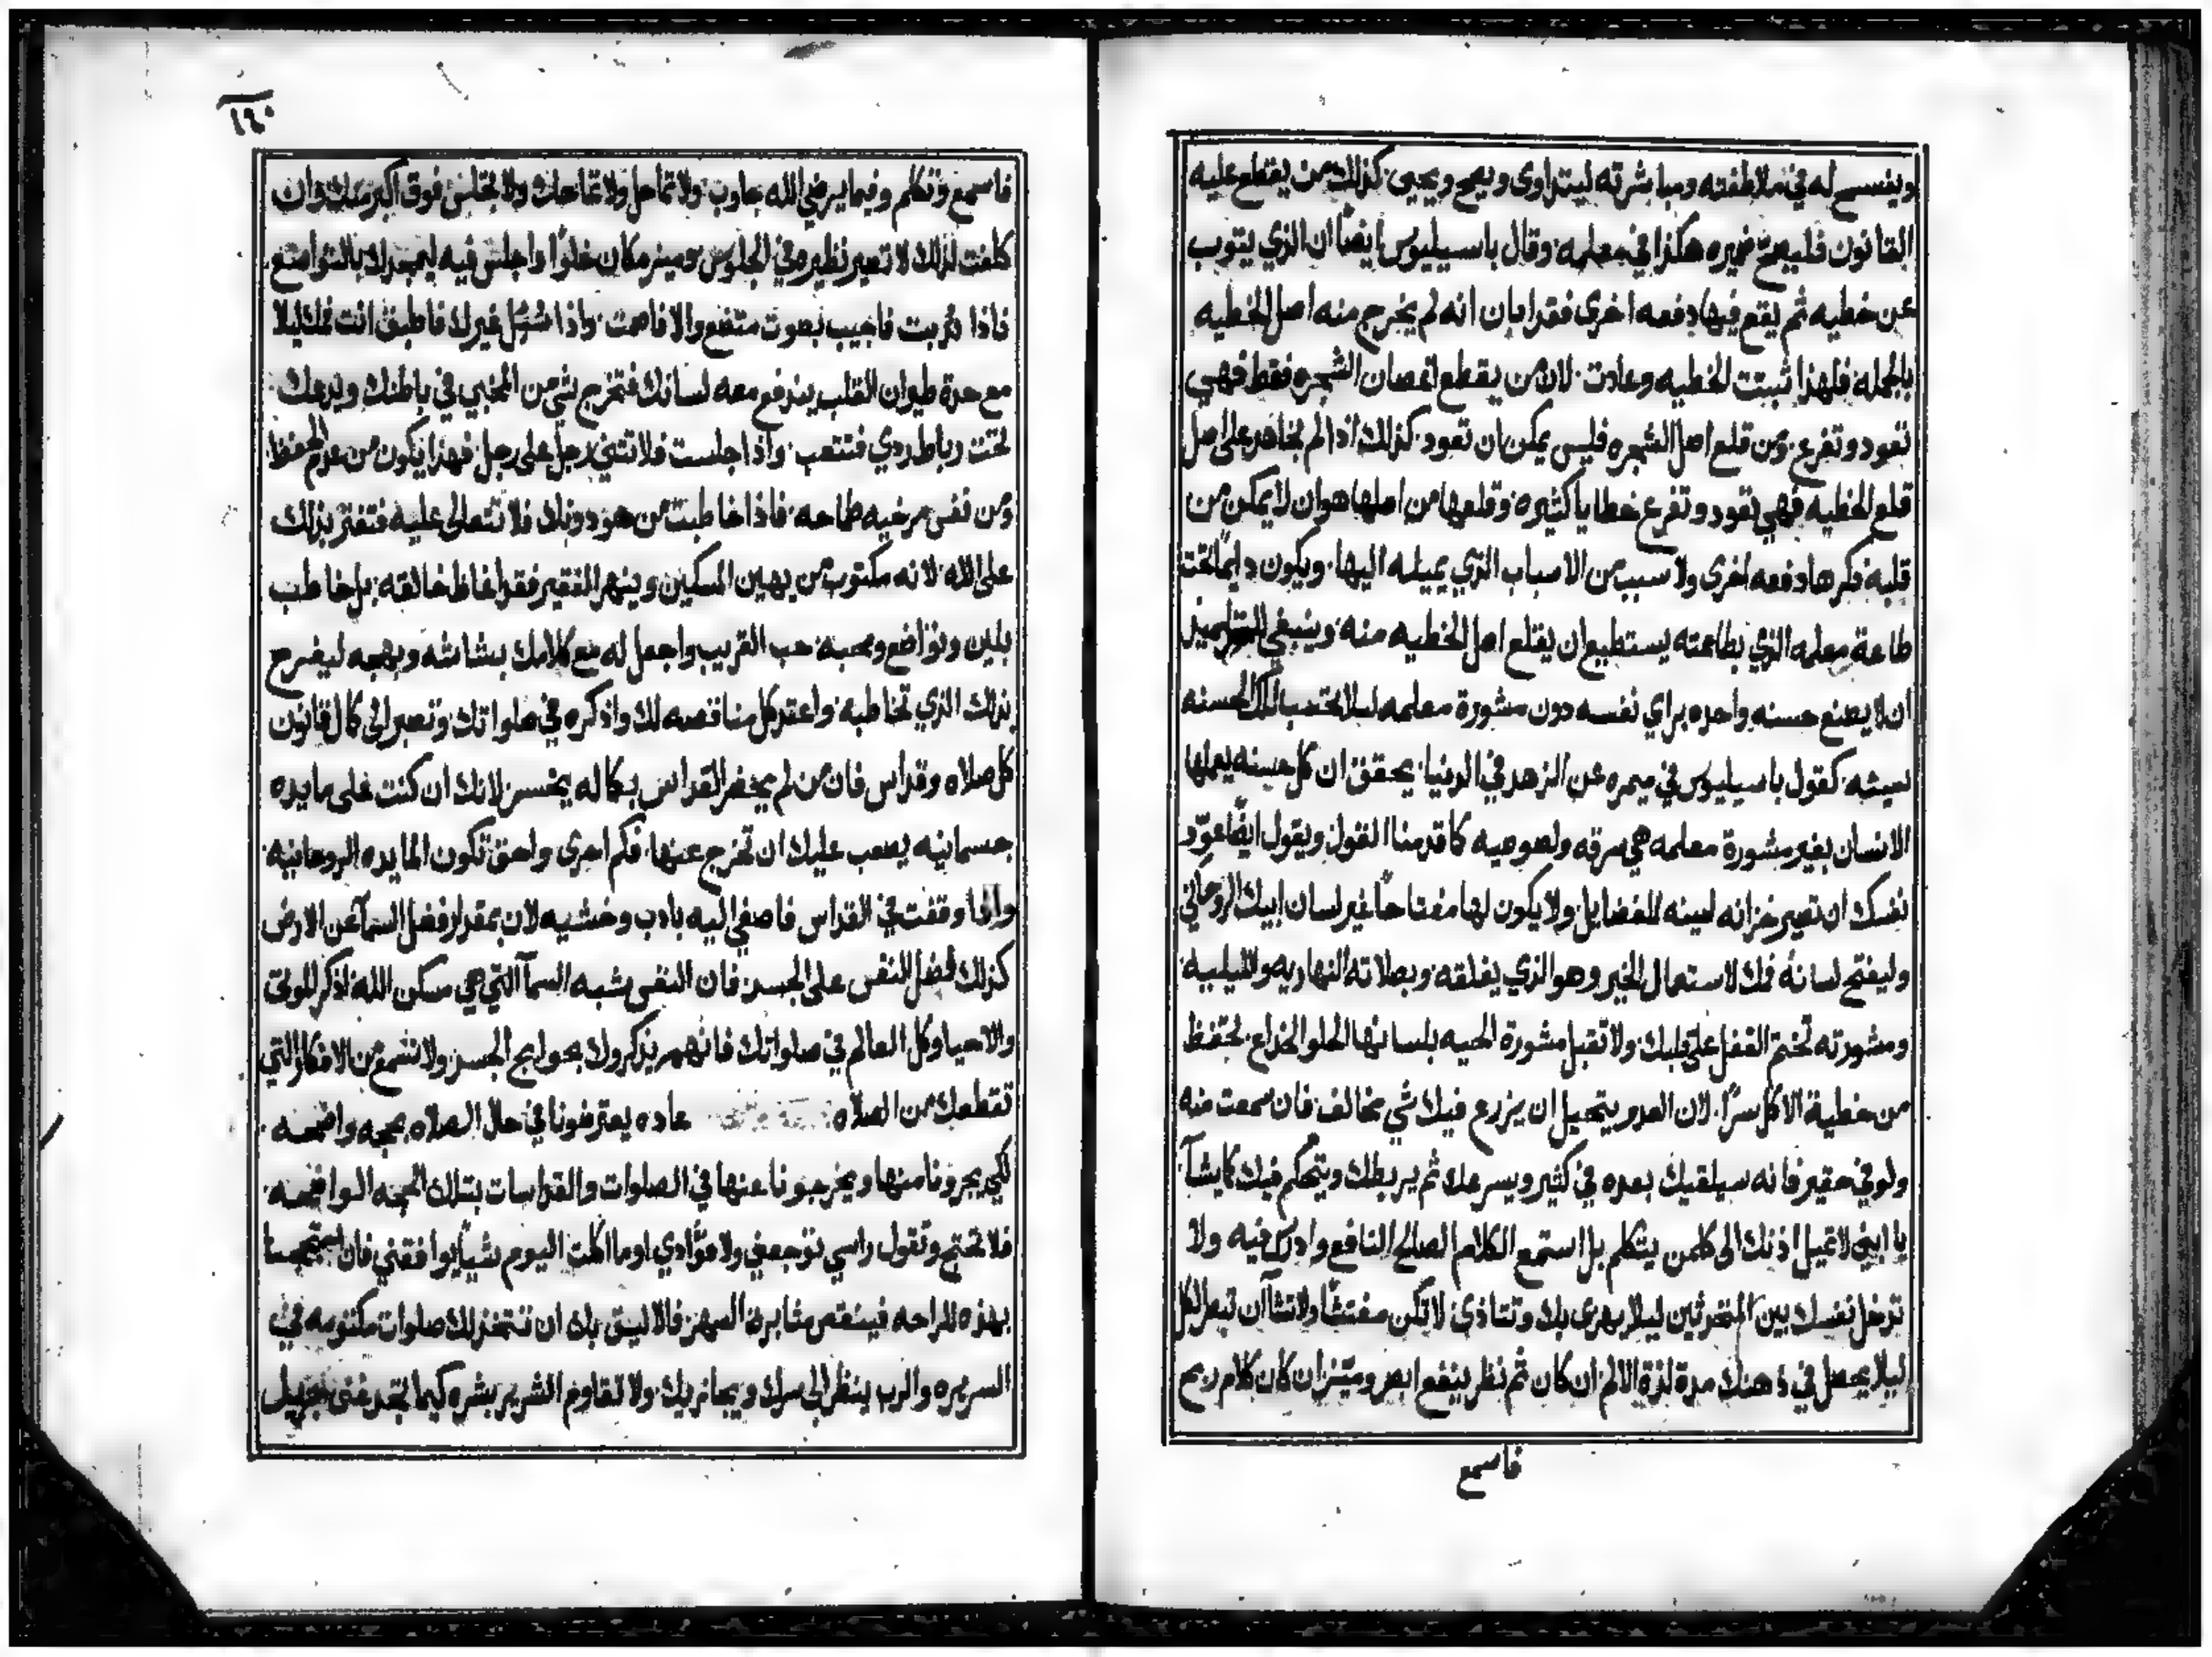 ويفسح له في ملاطفته ومباشرته ليتداوى ويصح ويحيى كذلك من يقطع عليه
القانون فليصحح ضميره هكذا في معلمه وقال باسيليوس ايضًا ان الذي يتوب
عن خطيه ثم يقع فيها دفعه اخرى فقد ابان انه لم يخرج منه اصل الخطيه
بالجمله فلهذا ثبتت الخطيه وعادت لان من يقطع اغصان الشجره فقط فهي
تعود وتفرع ومن قلع اصل الشجره فليس يمكن ان تعود كذلك اذا لم يجاهد على اصل
قلع الخطيه فهي تعود وتفرع خطايا كثيره وقلعها من اصلها هو ان لا يمكن من
قلبه ذكرها دفعه اخرى ولا سبب من الاسباب الذي يميله اليها ويكون دايمًا تحت
طاعة معلمه الذي بطاعته يستطيع ان يقلع اصل الخطيه منه وينبغي للتلميذ
ان لا يصنع حسنه واحده براي نفسه دون مشورة معلمه ليلا تحتسب تلك الحسنه
سيئه كقول باسيليوس في ميمره عن الزهد في الدنيا يحقق ان كل حسنه يعملها
الانسان بغير مشورة معلمه هي سرقه ولصوصيه كما قدمنا القول ويقول ايضًا عوّد
نفسك ان تصير خزانه امينه للفضايل ولا يكون لها مفتاحًا غير لسان ابيك الروحاني
وليفتح لسانه فمك لاستعمال الخير وهو الذي يغلقه وبصلاته النهاريه والليليه
ومشورته تختم القفل على قلبك ولا تقبل مشورة الحيه بلسانها الحلو الخداع لتحتفظ
من خطية الاكل سرًا لان العدو يتحيل ان يزرع فيك شي مخالف فان سمعت منه
ولو في حقير فانه سيلقيك بعده في كثير ويسرعلا ثم يربطك ويتحكم فيك كما يشآ
يا ابني لا تميل اذنك الى كلمن يتكلم بل استمع الكلام الصالح النافع وادرك فيه ولا
تدخل نفسك بين المتحدثين ليلا يهزى بك وتتاذى لا تكن مفتشًا ولا تشآ ان تبصر الكل
ليلا يحصل في ذهنك مدة لذة الالم ان كان ثم نظر ينفع ابصر وميّز ان كان كلام ربح
فاسمع
١٤٠
فاسمع وتكلم وفيما يرضي الله جاوب ولا تماحل ولا تماحك ولا تجلس فوق اكبر منك وان
كلفت لذلك لا تصير نظيره في الجلوس وميز مكان خلوًا واجلس فيه ليمجدك بالتواضع
فاذا جُربت فاجيب بصوت متضع والا فاصمت واذا سُيل غيرك فاطبق انت فمك ليلا
مع حدة طيوان القلب يندفع معه لسانك فتخرج شي من المخبي في باطنك ويدعك
تحت رباط ردي فتتعب واذا جلست فلا تثني رجل على رجل فهذا يكون من عدم الحفظ
ومن نفس مرخيه طماحه فاذا خاطبت من هو دونك فلا تتعالى عليه فتفتر بذلك
على الاه لانه مكتوب من يهين المسكين وينهر الفقير فقد اغاظ خالقه بل خاطب
بلين وتواضع ومحبة حب القريب واجعل له مع كلامك بشاشه وبهجه ليفرح
بذلك الذي تخاطبه واعتد كل مناقصه لك واذكره في صلواتك وتصبر الى كمال قانون
كل صلاه وقداس فان من لم يحضر القداس بكماله يخسر لانك ان كنت على مايده
جسمانيه يصعب عليك ان تخرج عنها فكم احرى واحق تكون المايده الروحانيه
واذا وقفت في القداس فاصغي اليه بادب وخشيه لان بمقدار فضل السمآ عن الارض
كذلك فضل النفس على الجسد فان النفس شبه السمآ التي هي مسكن الله اذكر الموتى
والاحيا وكل العالم في صلواتك فانهم يذكروك بحوايج الجسد ولا تشمع من الافكار التي
تقطعك من الصلاه عاده يعترضونا في حال الصلاه بحجه واضحه
لكي يجرونا منها ويخرجونا عنها في الصلوات والقداسات بتلك الحجه الواضحه
فلا تحتج وتقول راسي توجعني ولا فؤادي او ما اكلت اليوم شيًا يوافقني فان
بهذه الراحه فينقص مثابرة السهر فالاليق بك ان تتخذ لك صلوات مكتومه في
السريره والرب ينظر الى سرك ويجازيك ولا تقاوم الشرير بشره كيما تجد غنى جزيل